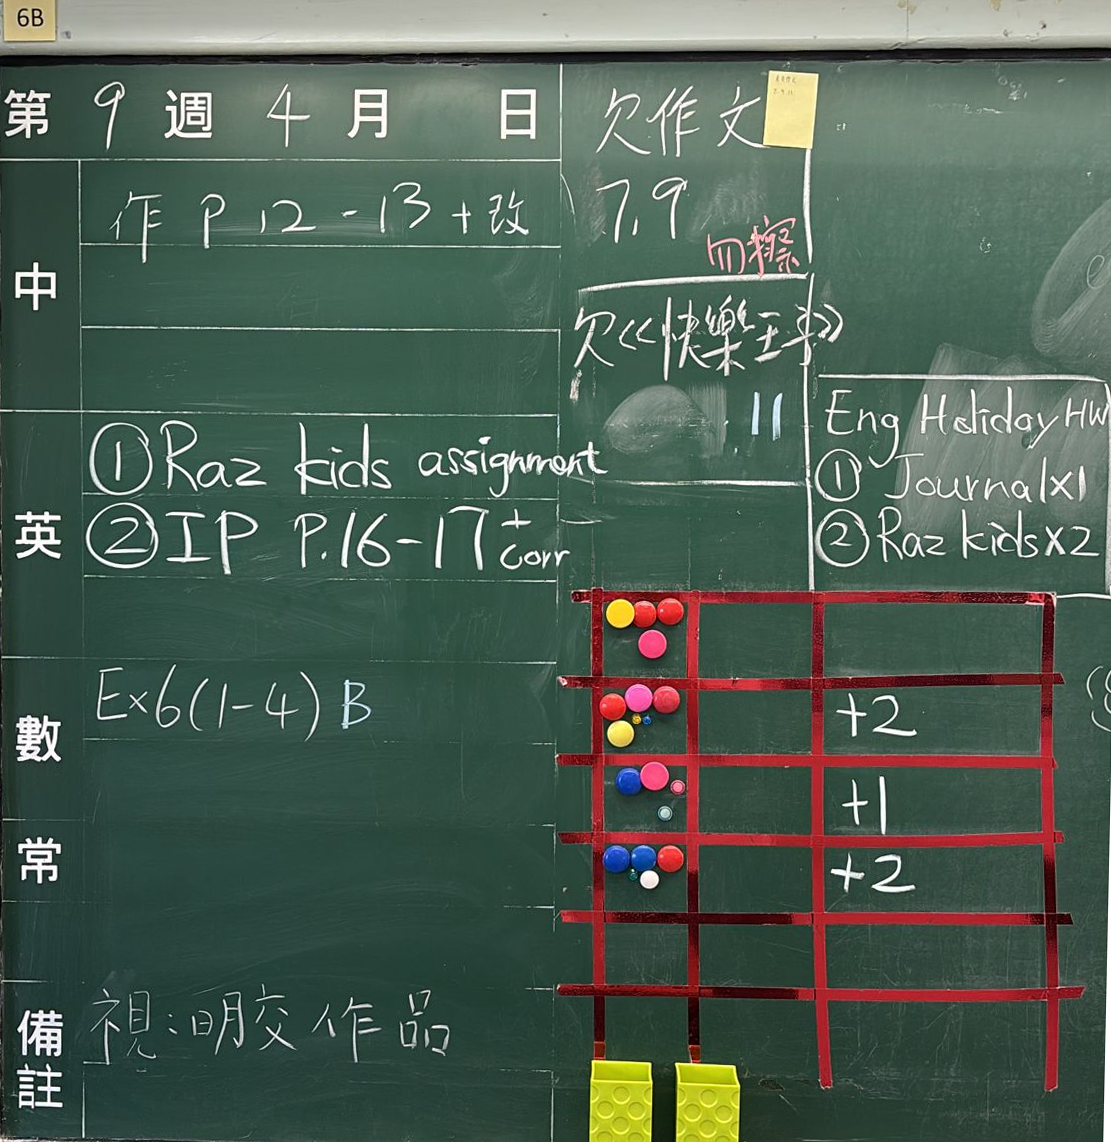 6B
第 9 週 4 月 日
中
作 P.12-13+改
英
①Raz kids assignment
②IP P.16-17+corr
數
Ex6(1-4) B
常
備註
視:明交作品
欠作文
7.9
勿擦
欠《快樂王子》
11
Eng Holiday HW
① Journalx1
② Raz kidsx2
+2
+1
+2